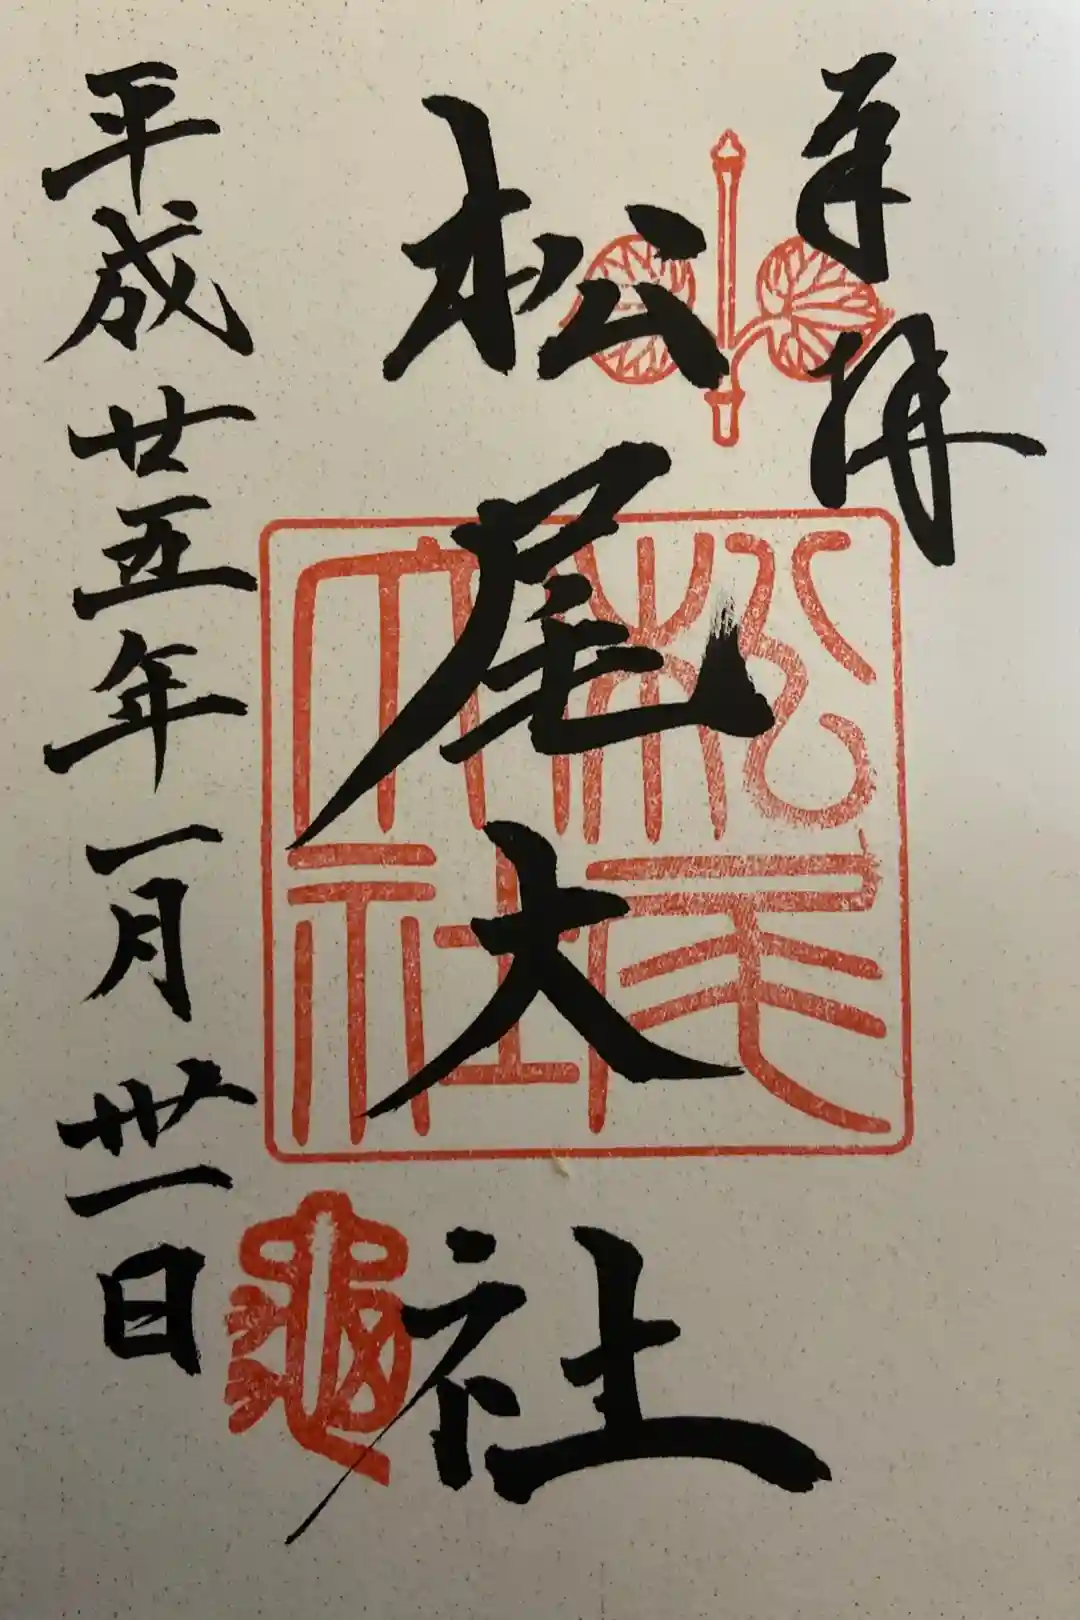 奉拝
松尾大社
平成廿五年一月丗一日
松尾大社
亀